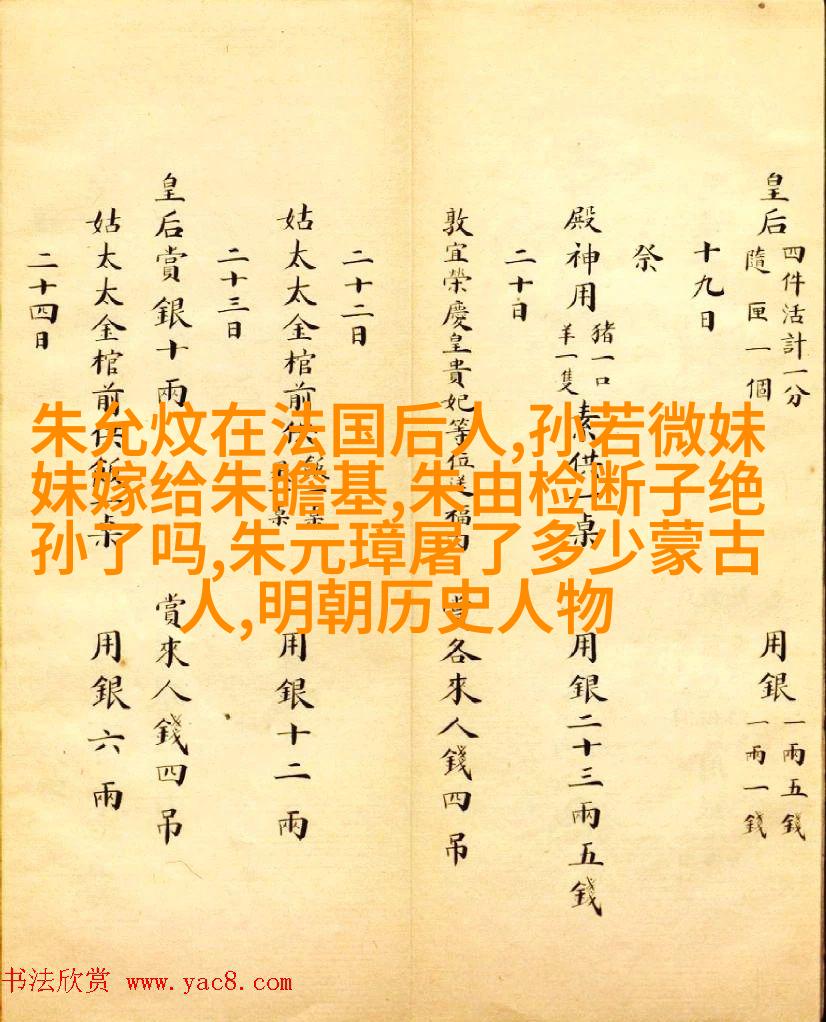 皇后
四件活計一分
隨匣一個
用銀
一兩五錢
一兩一錢
十九日
祭
殿神用
豬一口
羊一隻
素供一桌
用銀二十三兩五錢
二十日
敦宜榮慶皇貴妃等位送福肉
賞各來人錢四吊
二十二日
姑太太金棺前供飯一桌
用銀十二兩
二十三日
皇后賞銀十兩
賞來人錢四吊
姑太太金棺前供飯一桌
用銀六兩
二十四日
朱允炆在法国后人,孙若微妹
妹嫁给朱瞻基,朱由检断子绝
孙了吗,朱元璋屠了多少蒙古
人,明朝历史人物
书法欣赏 www.yac8.com